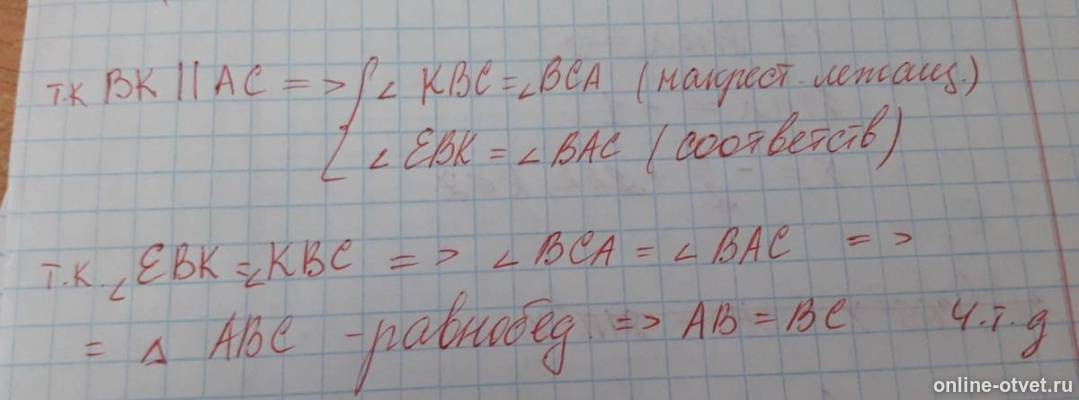 т.к BK || AC => { ∠ KBC = ∠BCA (накрест. лежащ.)
∠ EBK = ∠ BAC (соответств)
т.к. ∠ EBK = ∠KBC => ∠ BCA = ∠ BAC =>
= △ ABC - равнобед. => AB = BC ч.т.д
online-otvet.ru